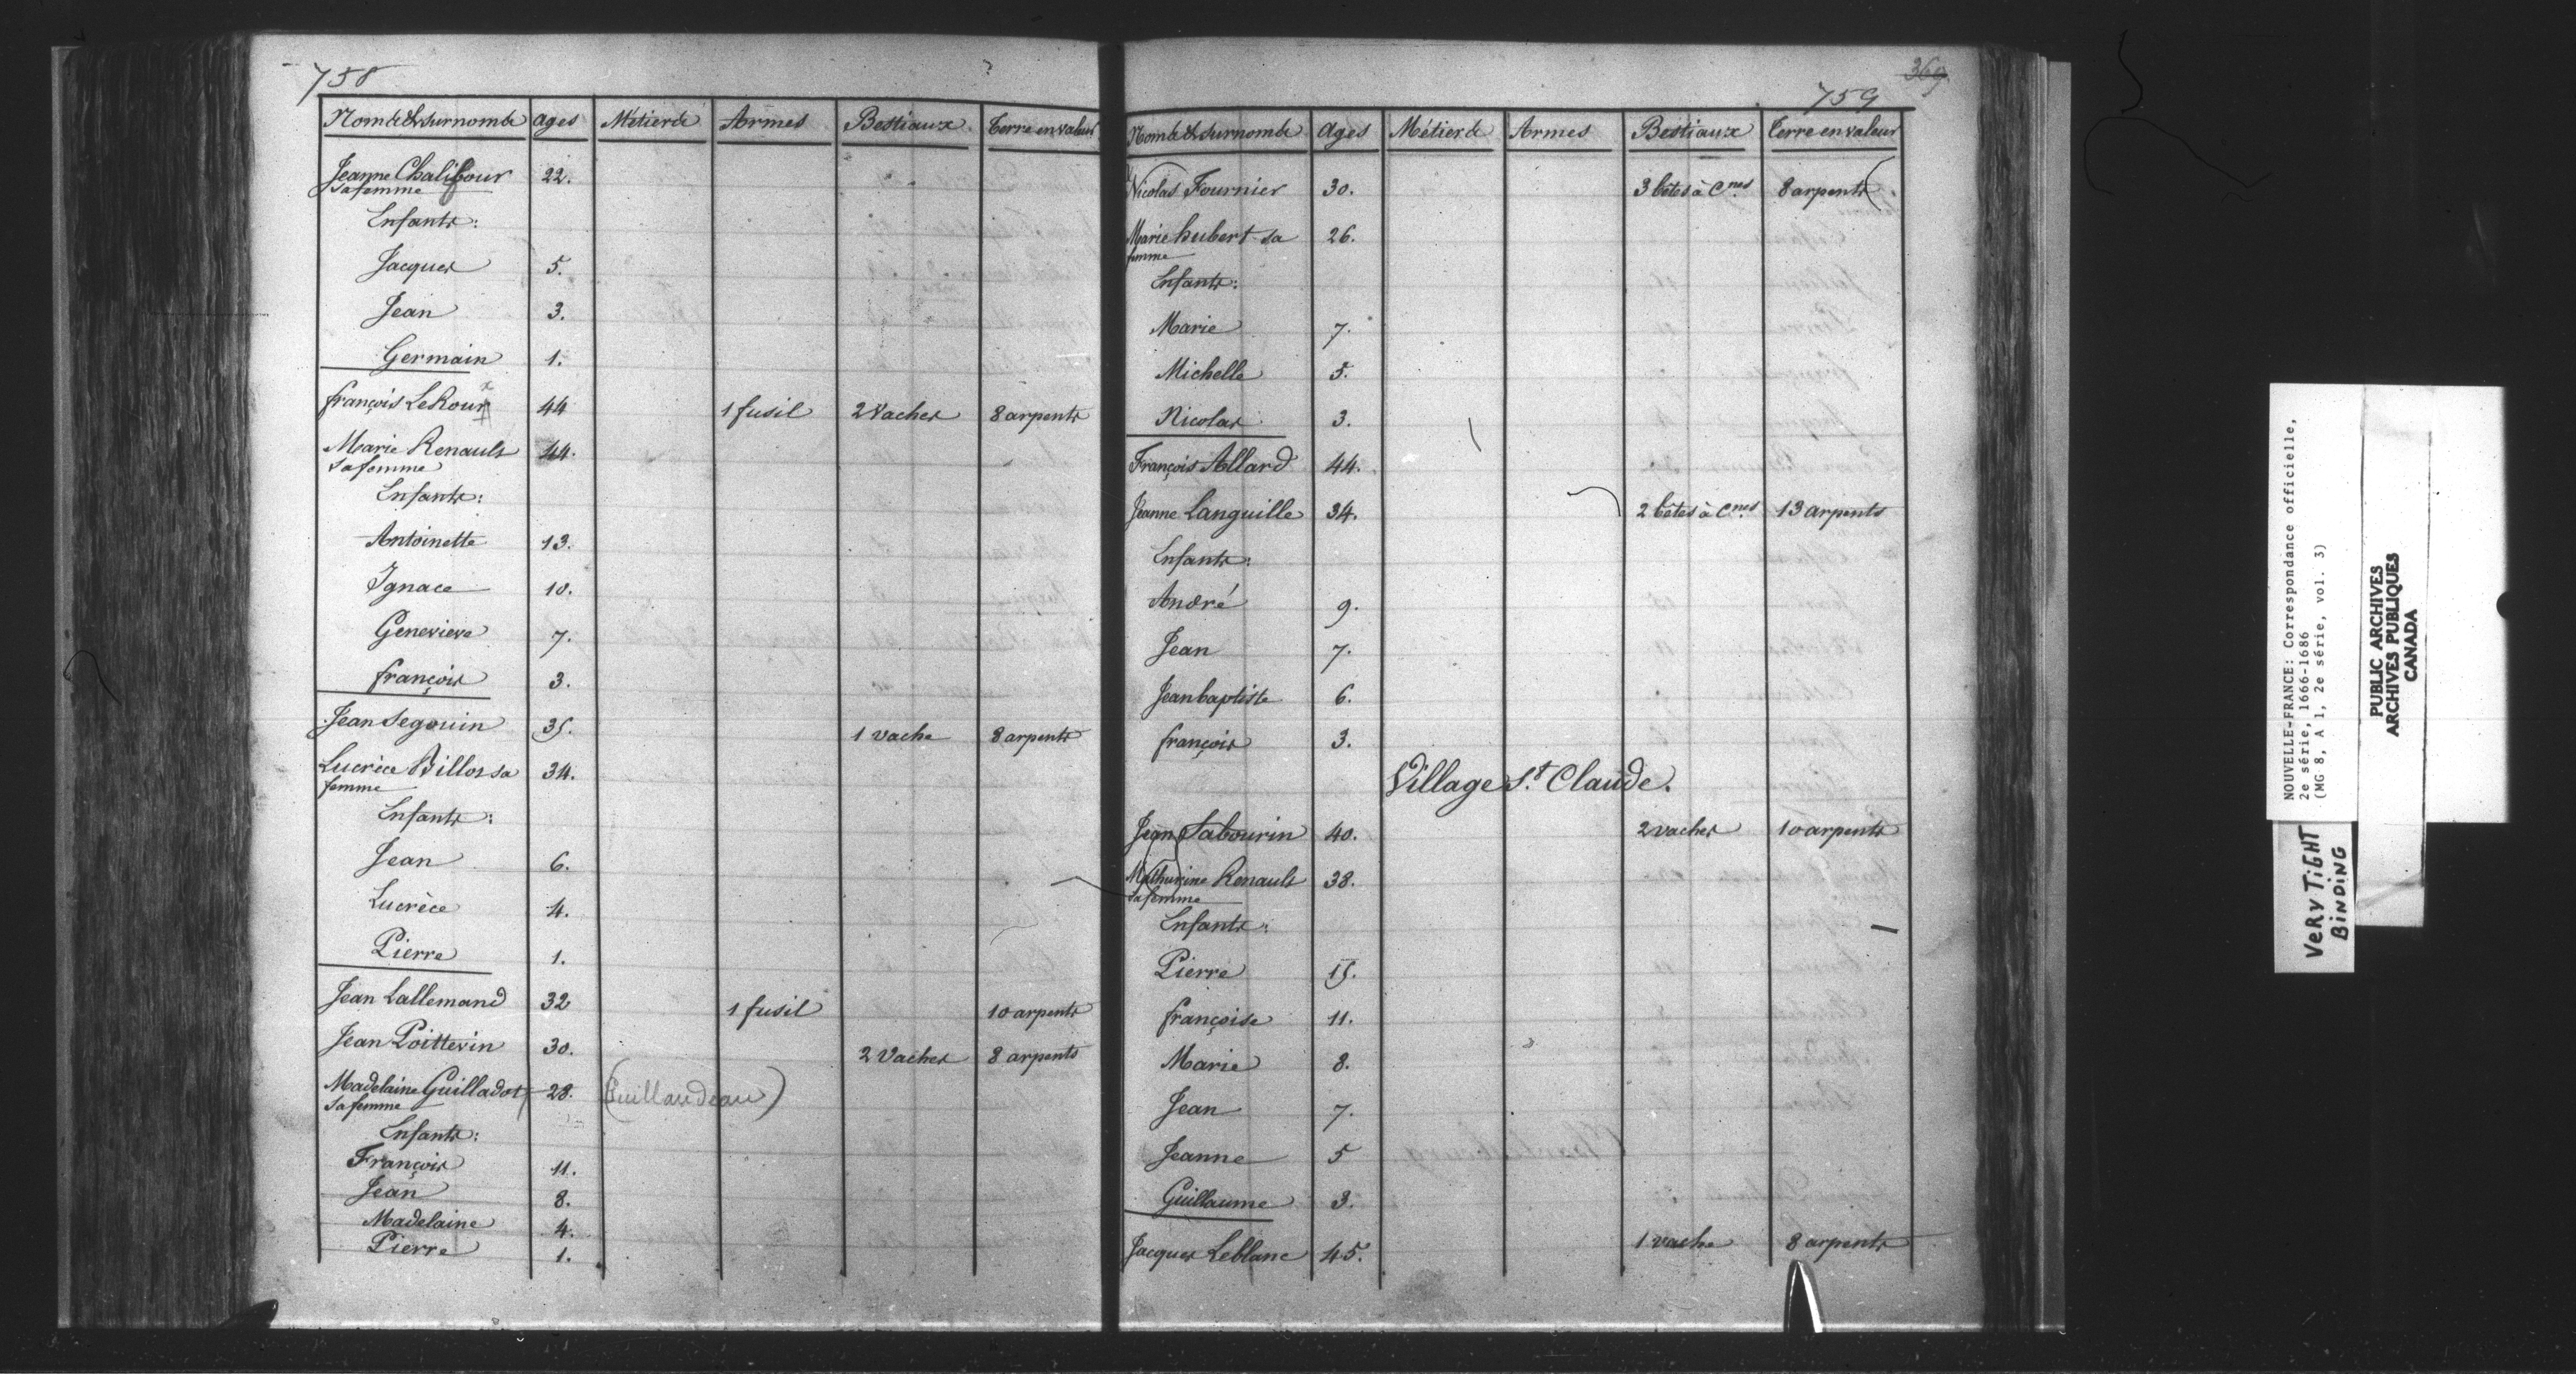 758
Noms & surnoms Ages Métiers Armes Bestiaux Terre en valeur
Jeanne Chalifour 22.
sa femme
Enfants:
Jacques 5.
Jean 3.
Germain 1.
françois LeRoux 44 1 fusil 2 Vaches 8 arpents
Marie Renault 44.
sa femme
Enfants:
Antoinette 13.
Ignace 10.
Genevieve 7.
françois 3.
Jean Segouin 35. 1 vache 8 arpents
Lucrèce Billot sa 34.
femme
Enfants:
Jean 6.
Lucrèce 4.
Pierre 1.
Jean Lallemand 32 1 fusil 10 arpents
Jean Poittevin 30. 2 Vaches 8 arpents
Madelaine Guilladot 28. (Guillaudeau)
sa femme
Enfants:
François 11.
Jean 8.
Madelaine 4.
Pierre 1.
369
759
Noms & surnoms Ages Métiers Armes Bestiaux Terre en valeur
Nicolas Fournier 30. 3 bêtes à Cnes 8 arpents
Marie hubert sa 26.
femme
Enfants:
Marie 7.
Michelle 5.
Nicolas 3.
François Allard 44.
Jeanne Languille 34. 2 bêtes à Cnes 13 arpents
Enfants:
André 9.
Jean 7.
Jean baptiste 6.
françois 3.
Village St. Claude.
Jean Sabourin 40. 2 vaches 10 arpents
Mathurine Renault 38.
sa femme
Enfants:
Pierre 15.
françoise 11.
Marie 8.
Jean 7.
Jeanne 5
Guillaume 3.
Jacques Leblanc 45. 1 vache 8 arpents
NOUVELLE-FRANCE: Correspondance officielle,
2e série, 1666-1686
(MG 8, A 1, 2e série, vol. 3)
PUBLIC ARCHIVES
ARCHIVES PUBLIQUES
CANADA
VERY TIGHT
BINDING